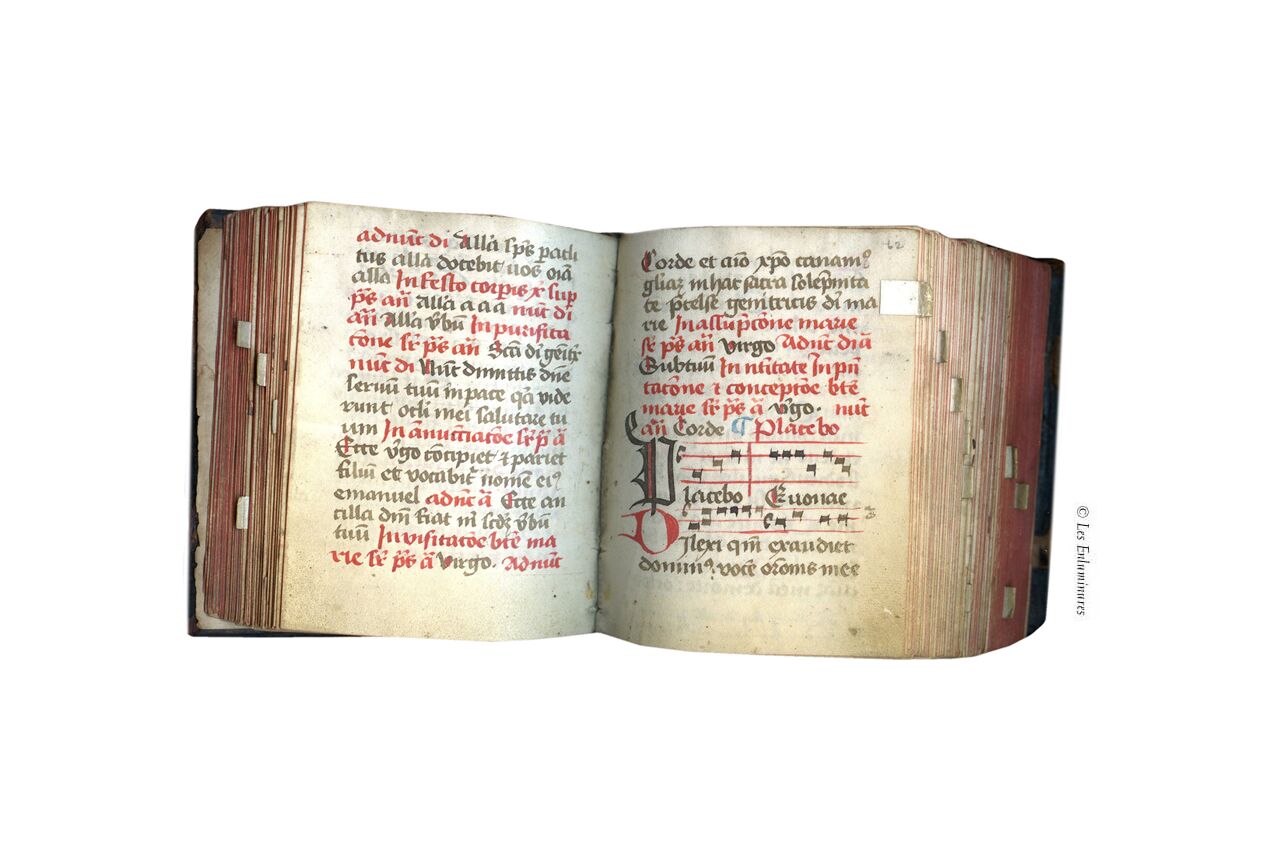 adnūc di Alla sp̄s pacli
tus alla docebit uos oīa
alla In festo corpis xp̄i sup
p̄s an̄ Alla a a a nūc di
an̄ Alla v̄bū In purifica
cōne sr̄ p̄s an̄ Scā di genitx
nūc di Nūc dimittis dn̄e
seruū tuū in pace qa vide
runt ocli mei salutare tu
um In annūcciacōe sr̄ p̄ a
Ecce v̓go cōcipiet ⁊ pariet
filiū et vocabit̓ nomē eiꝰ
emanuel adnūc a Ecce an
cilla dn̄i fiat m̄ scdꝫ v̄bū
tuū In visitacōe bt̄e ma
rie sr̄ p̄s a virgo. Adnūc
62
Corde et aīo xp̄o canamꝰ
gliaꝫ in hac sacra solēpnita
te p̄celse genitricis di ma
rie In assūpcōne marie
sr̄ p̄s an̄ virgo Adnūc di a
Subtuū In nītitate In p̄n
tacōne ⁊ conceptōe bt̄e
marie sr̄ p̄s a v̓go. nūc
an̄ Corde ¶ Placebo
Placebo Euouae
Dilexi qm̄ exaudiet
dominꝰ vocē or̄onis mee
© Les Enluminures